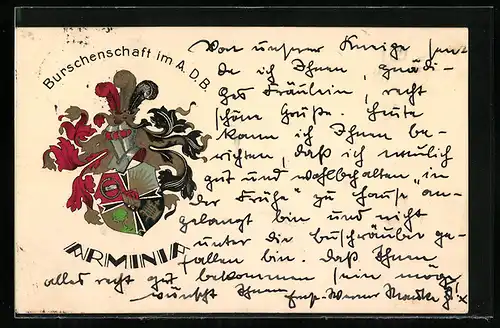 Burschenschaft im A.D.B.
ARMINIA
Von unserer Kneipe sen-
de ich Ihnen, gnädi-
ges Fräulein, recht
schöne Grüße. Heute
kann ich Ihnen be-
richten, daß ich neulich
gut und wohlbehalten „in
der Frühe" zu Hause an-
gelangt bin und nicht
unter die Buschräuber ge-
fallen bin. Daß Ihnen
alles recht gut bekommen sein möge
wünscht Ihnen Werner